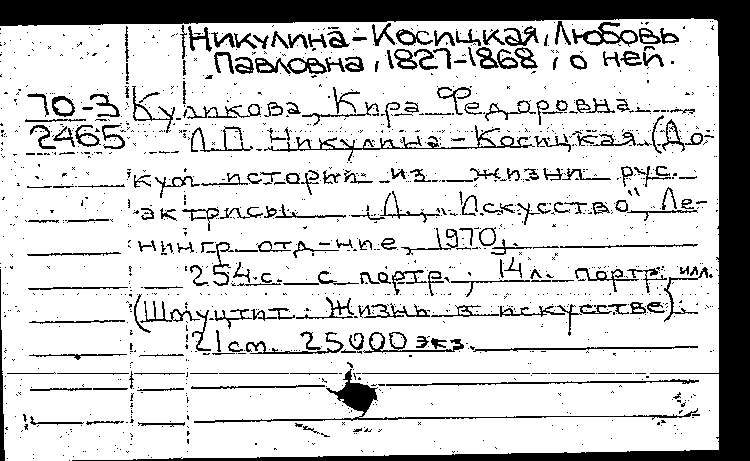 Никулина-Косицкая, Любовь
Павловна, 1827-1868, о ней.
70-3 Куликова, Кира Федоровна.
2465 Л.П. Никулина-Косицкая. (До-
кум. истории из жизни рус.
актрисы. (Л., "Искусство", Ле-
нингр. отд-ние, 1970).
254 с. с портр.; 14 л. портр., илл.
Жизнь в искусстве).
21 cm. 25000 экз.